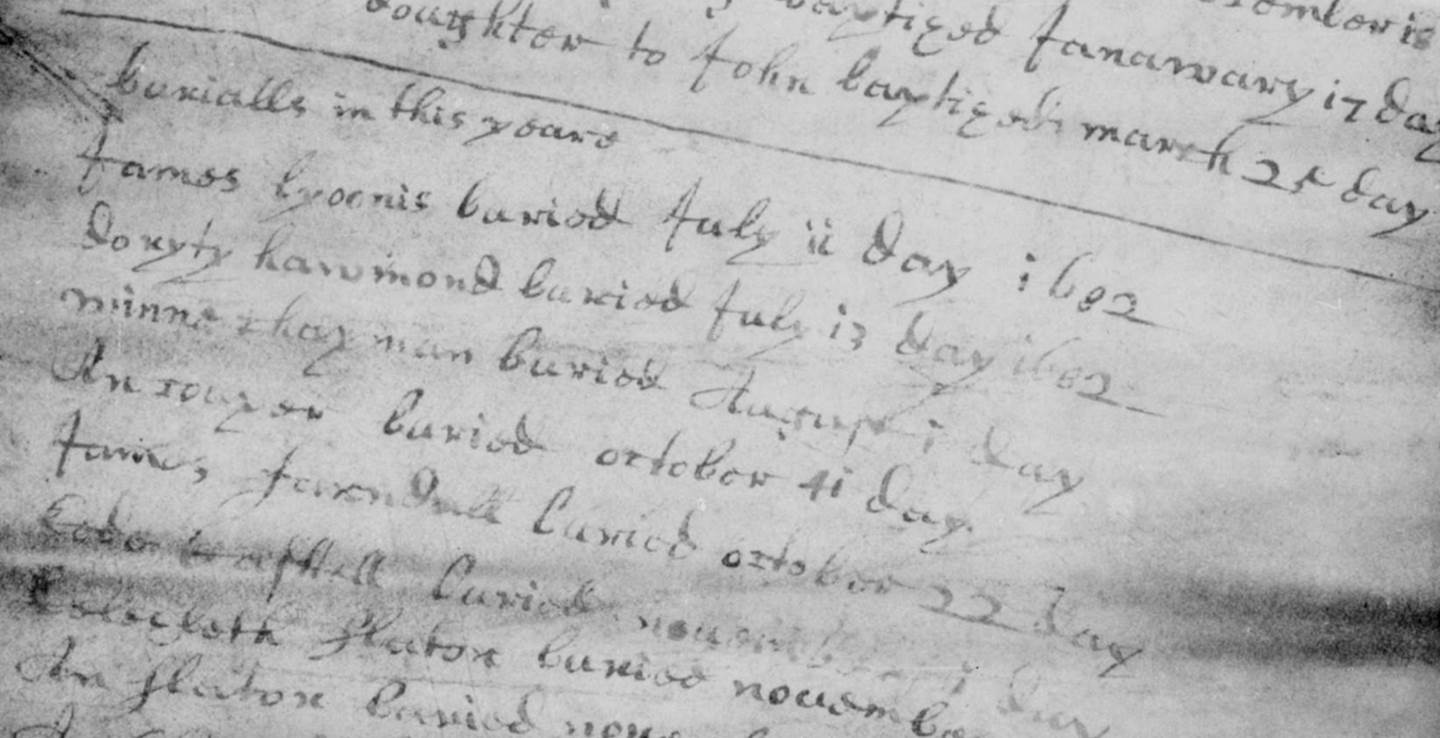 baptized Janawary 17 day
doughter to John baptized march 25 day
burialls in this yeare
James lyoonis buried July ii day 1602
doryty hawmond buried July 13 day 1602
winne chapman buried August day
An rouper buried october 41 day
James farndull buried october 22 day
buried november day
Eelezebeth slator buried november
An slator buried nove